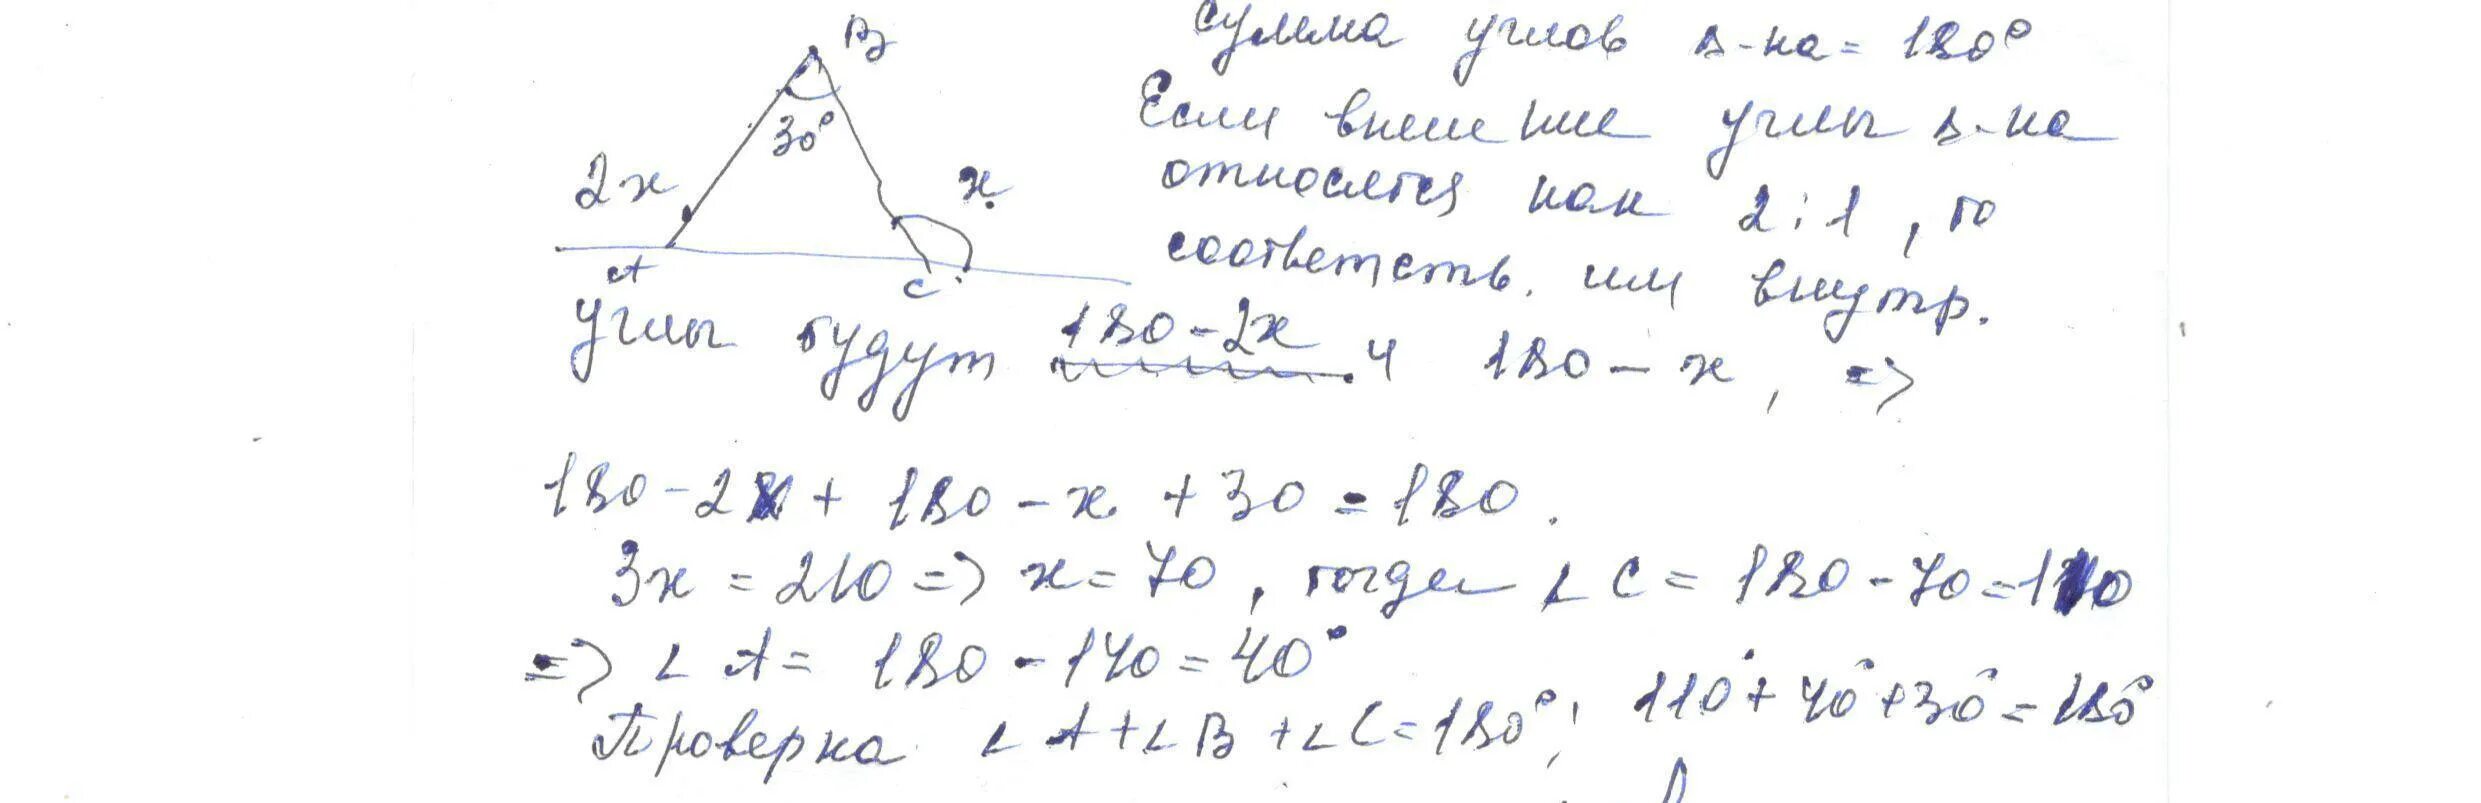 B
сумма углов Δ-ка = 180°
30°
Если внешние углы Δ-ка
2x
x
относятся как 2:1, то
A
C
соответств. им внутр.
углы будут 180-2x и 180-x, =>
180-2x + 180-x + 30 = 180.
3x = 210 => x = 70, тогда ∠C = 180-70=110
=> ∠A = 180-140=40°
Проверка ∠A+∠B+∠C=180°; 110°+40°+30°=180°